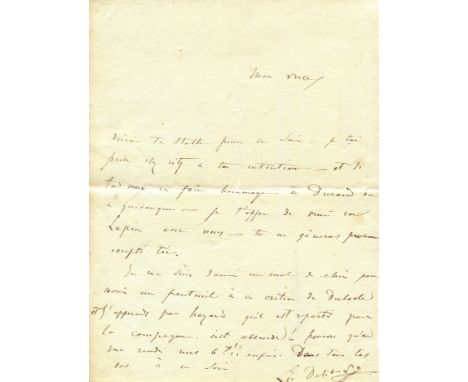 Mon vieux
Voici ta stalle pour ce soir — je t'ai
prise chez à ton intention — et si
tu veux en faire hommage à Durand ou
à quiconque — je t'offre de venir en
Lapin avec nous — tu ne gêneras personne
excepté toi.
Je me suis donné un mal de chien pour
avoir un fauteuil à ce crétin de
et j'apprends par hazard qu'il est reparti pour
la campagne. c'est absurde! pourvu qu'on
me rende mes 6 enfin. Dans tous les
cas à ce soir